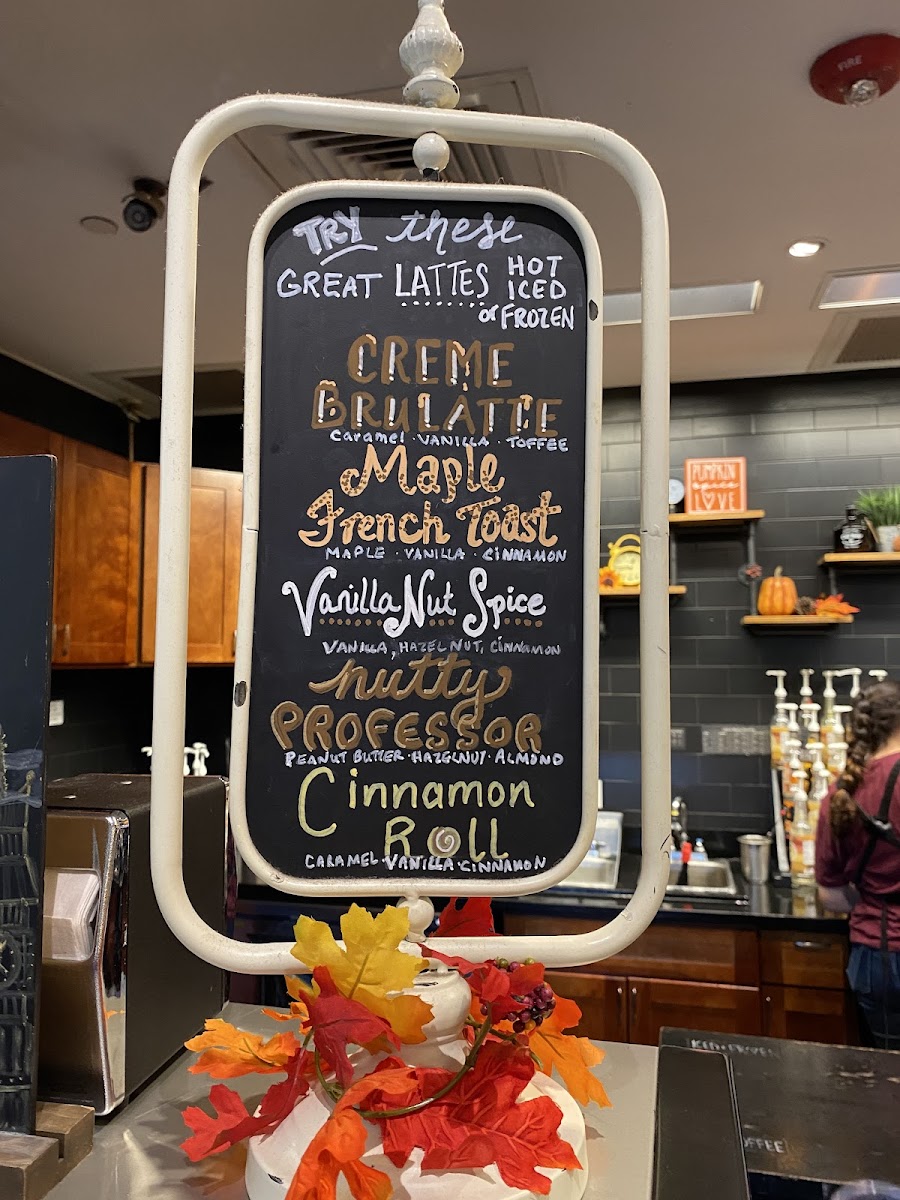 TRY these
GREAT LATTES HOT
ICED
or FROZEN
CREME
BRULATTE
Caramel · VANILLA · TOFFEE
Maple
French Toast
MAPLE · VANILLA · CINNAMON
Vanilla Nut Spice
VANILLA, HAZELNUT, CINNAMON
nutty
PROFESSOR
PEANUT BUTTER · HAZELNUT · ALMOND
Cinnamon
Roll
CARAMEL · VANILLA · CINNAMON
FIRE
PUMPKIN
spice
LOVE